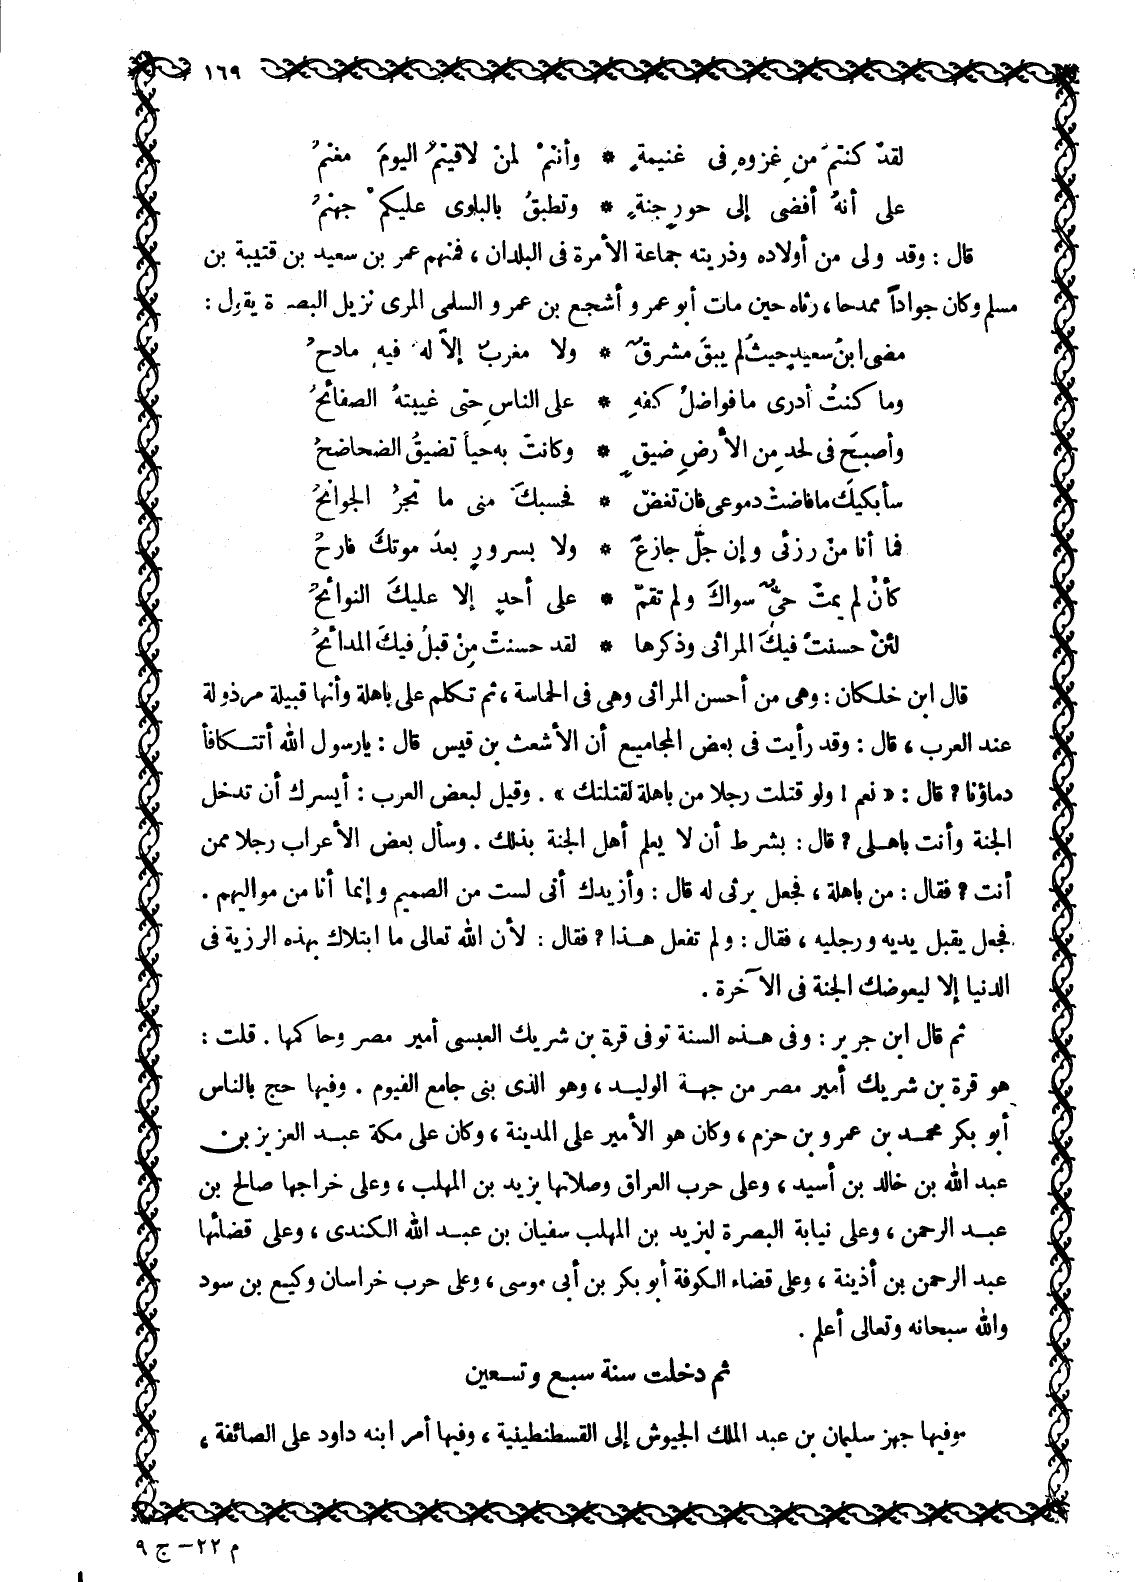 ١٦٩
لقدْ كنتمَ منِ غزوهِ فى غنيمةٍ * وأنتمْ لمنْ لاقيتمُ اليومَ مغنمُ
على أنهُ أفضى إلى حورِ جنةٍ * وتطبقُ بالبلوى عليكمْ جهنمُ
قال : وقد ولى من أولاده وذريته جماعة الأمرة فى البلدان ، فمنهم عمر بن سعيد بن قتيبة بن
مسلم وكان جواداً ممدحا ، رثاه حين مات أبو عمرو أشجع بن عمرو السلمى المرى نزيل البصرة يقول :
مضى ابنُ سعيدٍ حيثُ لم يبقَ مشرقٌ * ولا مغربٌ إلاّ لهُ فيهِ مادحُ
وما كنتُ أدرى ما فواضلُ كفهِ * على الناسِ حتى غيبتهُ الصفائحُ
وأصبحَ فى لحدٍ من الأرضِ ضيقٍ * وكانتْ به حياً تضيقُ الضحاضحُ
سأبكيكَ ما فاضتْ دموعى فان تغضْ * فحسبكَ منى ما تجرُ الجوانحُ
فما أنا منْ رزئى وإن جلَّ جازعٌ * ولا بسرورٍ بعدُ موتكَ فارحُ
كأنْ لم يمتْ حىٌّ سواكَ ولم تقمْ * على أحدٍ إلا عليكَ النوائحُ
لئنْ حسنتْ فيكَ المراثى وذكرها * لقد حسنتْ منْ قبلُ فيكَ المدائحُ
قال ابن خلكان : وهى من أحسن المراثى وهى فى الحماسة ، ثم تكلم على باهلة وأنها قبيلة مرذولة
عند العرب ، قال : وقد رأيت فى بعض المجاميع أن الأشعث بن قيس قال : يارسول الله أتتكافأ
دماؤنا ؟ قال : « نعم ! ولو قتلت رجلا من باهلة لقتلتك » . وقيل لبعض العرب : أيسرك أن تدخل
الجنة وأنت باهلى ؟ قال : بشرط أن لا يعلم أهل الجنة بذلك . وسأل بعض الأعراب رجلا ممن
أنت ؟ فقال : من باهلة ، فجعل يرثى له قال : وأزيدك أنى لست من الصميم وإنما أنا من مواليهم .
فجعل يقبل يديه ورجليه ، فقال : ولم تفعل هذا ؟ فقال : لأن الله تعالى ما ابتلاك بهذه الرزية فى
الدنيا إلا ليعوضك الجنة فى الآخرة .
ثم قال ابن جرير : وفى هذه السنة توفى قرة بن شريك العبسى أمير مصر وحاكمها . قلت :
هو قرة بن شريك أمير مصر من جهة الوليد ، وهو الذى بنى جامع الفيوم . وفيها حج بالناس
أبو بكر محمد بن عمرو بن حزم ، وكان هو الأمير على المدينة ، وكان على مكة عبد العزيز بن
عبد الله بن خالد بن أسيد ، وعلى حرب العراق وصلاتها يزيد بن المهلب ، وعلى خراجها صالح بن
عبد الرحمن ، وعلى نيابة البصرة ليزيد بن المهلب سفيان بن عبد الله الكندى ، وعلى قضائها
عبد الرحمن بن أذينة ، وعلى قضاء الكوفة أبو بكر بن أبى موسى ، وعلى حرب خراسان وكيع بن سود
والله سبحانه وتعالى أعلم .
ثم دخلت سنة سبع وتسعين
وفيها جهز سليمان بن عبد الملك الجيوش إلى القسطنطينية ، وفيها أمر ابنه داود على الصائفة ،
م ٢٢ – ج ٩